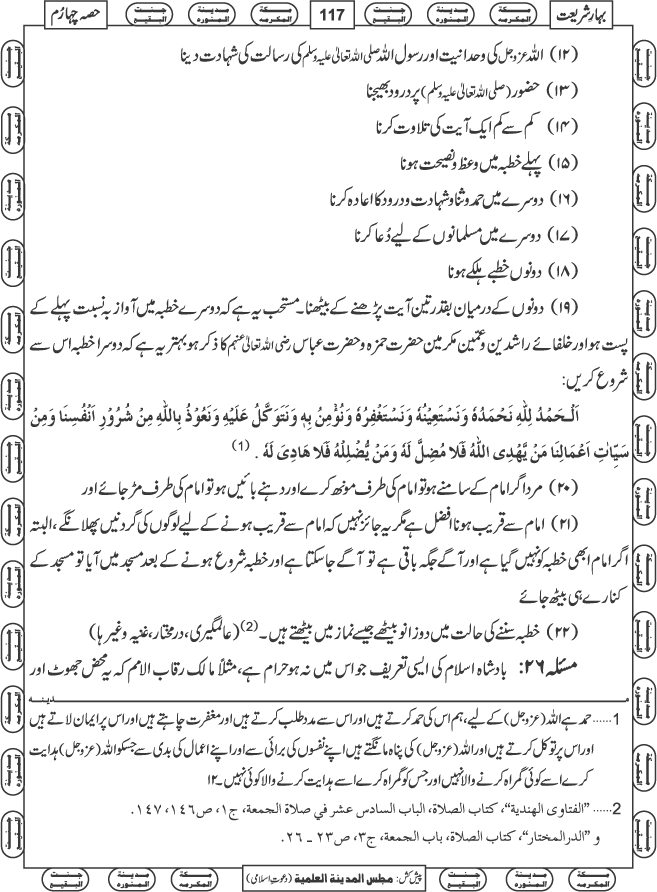 بہارِ شریعت
117
حصہ چہارم
(۱۲) اللہ عزوجل کی وحدانیت اور رسول اللہ صلی اللہ تعالیٰ علیہ وسلم کی رسالت کی شہادت دینا
(۱۳) حضور (صلی اللہ تعالیٰ علیہ وسلم) پر درود بھیجنا
(۱۴) کم سے کم ایک آیت کی تلاوت کرنا
(۱۵) پہلے خطبہ میں وعظ و نصیحت ہونا
(۱۶) دوسرے میں حمد و ثنا و شہادت و درود کا اعادہ کرنا
(۱۷) دوسرے میں مسلمانوں کے لیے دُعا کرنا
(۱۸) دونوں خطبے ہلکے ہونا
(۱۹) دونوں کے درمیان بقدر تین آیت پڑھنے کے بیٹھنا۔ مستحب یہ ہے کہ دوسرے خطبہ میں آواز بہ نسبت پہلے کے
پست ہو اور خلفائے راشدین و عمّین مکرمین حضرت حمزہ و حضرت عباس رضی اللہ تعالیٰ عنہم کا ذکر ہو بہتر یہ ہے کہ دوسرا خطبہ اس سے
شروع کریں:
اَلْحَمْدُ لِلّٰهِ نَحْمَدُهٗ وَنَسْتَعِيْنُهٗ وَنَسْتَغْفِرُهٗ وَنُؤْمِنُ بِهٖ وَنَتَوَكَّلُ عَلَيْهِ وَنَعُوْذُ بِاللّٰهِ مِنْ شُرُوْرِ اَنْفُسِنَا وَمِنْ
سَيِّاٰتِ اَعْمَالِنَا مَنْ يَّهْدِى اللّٰهُ فَلَا مُضِلَّ لَهٗ وَمَنْ يُّضْلِلْهُ فَلَا هَادِىَ لَهٗ . (1)
(۲۰) مرد اگر امام کے سامنے ہو تو امام کی طرف مونھ کرے اور دہنے بائیں ہو تو امام کی طرف مڑ جائے اور
(۲۱) امام سے قریب ہونا افضل ہے مگر یہ جائز نہیں کہ امام سے قریب ہونے کے لیے لوگوں کی گردنیں پھلانگے، البتہ
اگر امام ابھی خطبہ کو نہیں گیا ہے اور آگے جگہ باقی ہے تو آگے جا سکتا ہے اور خطبہ شروع ہونے کے بعد مسجد میں آیا تو مسجد کے
کنارے ہی بیٹھ جائے
(۲۲) خطبہ سننے کی حالت میں دو زانو بیٹھے جیسے نماز میں بیٹھتے ہیں۔ (2) (عالمگیری، درمختار، غنیہ وغیرہا)
مسئلہ ۲۶: بادشاہ اسلام کی ایسی تعریف جو اس میں نہ ہو حرام ہے، مثلاً مالک رقاب الامم کہ یہ محض جھوٹ اور
مدینہ
1 ...... حمد ہے اللہ (عزوجل) کے لیے، ہم اس کی حمد کرتے ہیں اور اس سے مدد طلب کرتے ہیں اور مغفرت چاہتے ہیں اور اس پر ایمان لاتے ہیں
اور اس پر توکل کرتے ہیں اور اللہ (عزوجل) کی پناہ مانگتے ہیں اپنے نفسوں کی برائی سے اور اپنے اعمال کی بدی سے جسکو اللہ (عزوجل) ہدایت
کرے اسے کوئی گمراہ کرنے والا نہیں اور جس کو گمراہ کرے اسے ہدایت کرنے والا کوئی نہیں۔ ۱۲
2 ...... "الفتاوى الهندية"، كتاب الصلاة، الباب السادس عشر في صلاة الجمعة، ج١، ص١٤٦، ١٤٧.
و "الدرالمختار"، كتاب الصلاة، باب الجمعة، ج٣، ص٢٣ ـ ٢٦.
پیش کش: مجلس المدینة العلمیة (دعوتِ اسلامی)